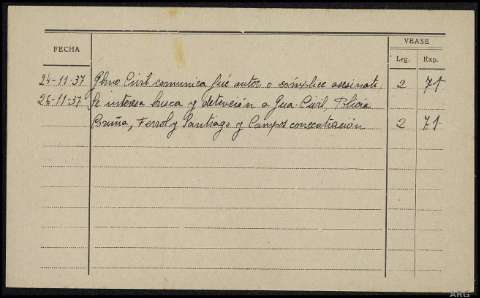 VEASE
FECHA
Leg. Exp.
24-11-37 Gbno Civil comunica fué autor o cómplice asesinato, 2 71
26-11-37 Se interesa busca y detención a Gua Civil, Policia
Coruña, Ferrol y Santiago y Campos concentración 2 71
ARG